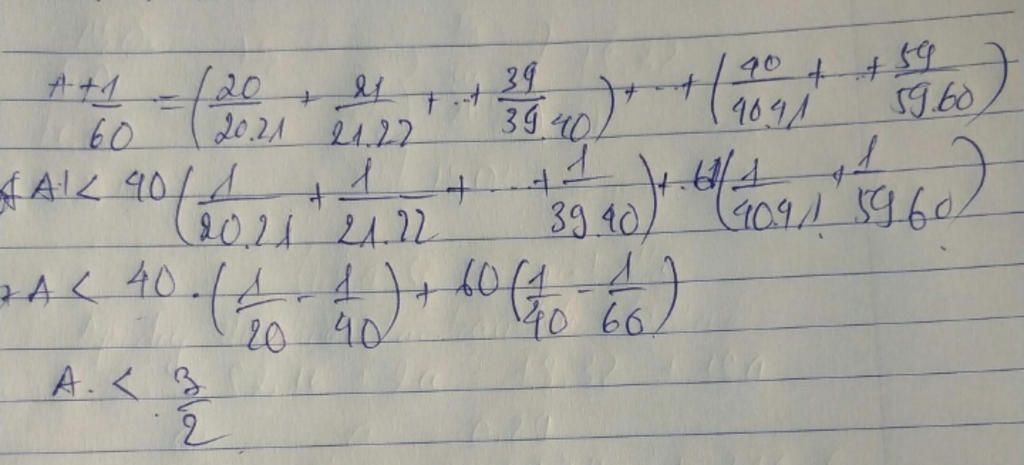 A + 1/60 = (20/20.21 + 21/21.22 + .. + 39/39.40) + .. + (40/40.41 + .. + 59/59.60)
A < 40(1/20.21 + 1/21.22 + ... + 1/39.40) + (1/40.41 + 1/59.60)
A < 40 . (1/20 - 1/40) + 60(1/40 - 1/60)
A. < 3/2